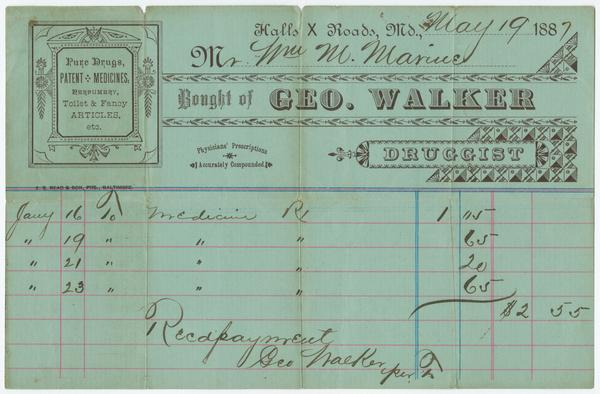 Halls X Roads, Md., May 19 1887
Mr. Wm M. Marine
Bought of GEO. WALKER
DRUGGIST
Pure Drugs,
PATENT MEDICINES,
PERFUMERY,
Toilet & Fancy
ARTICLES,
etc.
Physicians' Prescriptions
Accurately Compounded.
Jany 16 To medicine Rx 1 05
" 19 " " " 65
" 21 " " " 20
" 23 " " " 65
$2 55
Recdpayment
Geo Walker
per